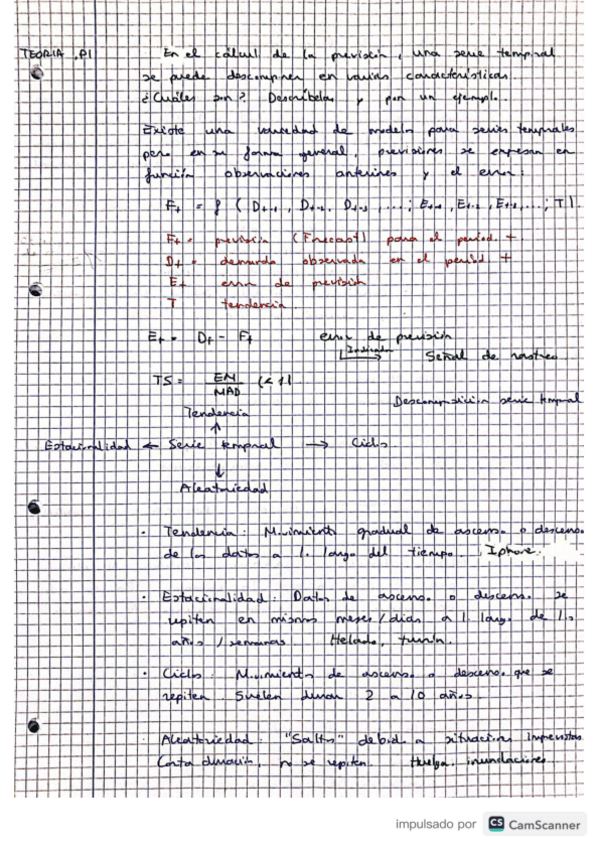 TEORIA P1
En el cálculo de la previsión, una serie temporal
se puede descomponer en varias características.
¿Cuáles son? Descríbelas y pon un ejemplo.
Existe una variedad de modelos para series temporales
pero en su forma general, previsiones se expresan en
función observaciones anteriores y el error:
Ft = f ( Dt-1, Dt-2, Dt-3, ...; Et-1, Et-2, Et-3, ...; T ).
Ft = previsión (Forecast) para el period. t
Dt = demanda observada en el period. t
Et error de previsión
T tendencia
Et = Dt - Ft error de previsión
Indicador → Señal de rastreo
TS = EM / MAD (< 1)
Descomposición serie temporal
Tendencia
Estacionalidad ← Serie temporal → Ciclo
Aleatoriedad
· Tendencia: Movimiento gradual de ascenso o descenso
de los datos a lo largo del tiempo. Iphone.
· Estacionalidad: Datos de ascenso o descenso se
repiten en mismos meses/días a lo largo de los
años / semanas Helado, turrón.
· Ciclo: Movimiento de ascenso o descenso que se
repiten. Suelen durar 2 a 10 años.
· Aleatoriedad: "Saltos" debido a situaciones imprevistas
Corta duración, no se repiten. Huelga, inundaciones.
impulsado por CS CamScanner